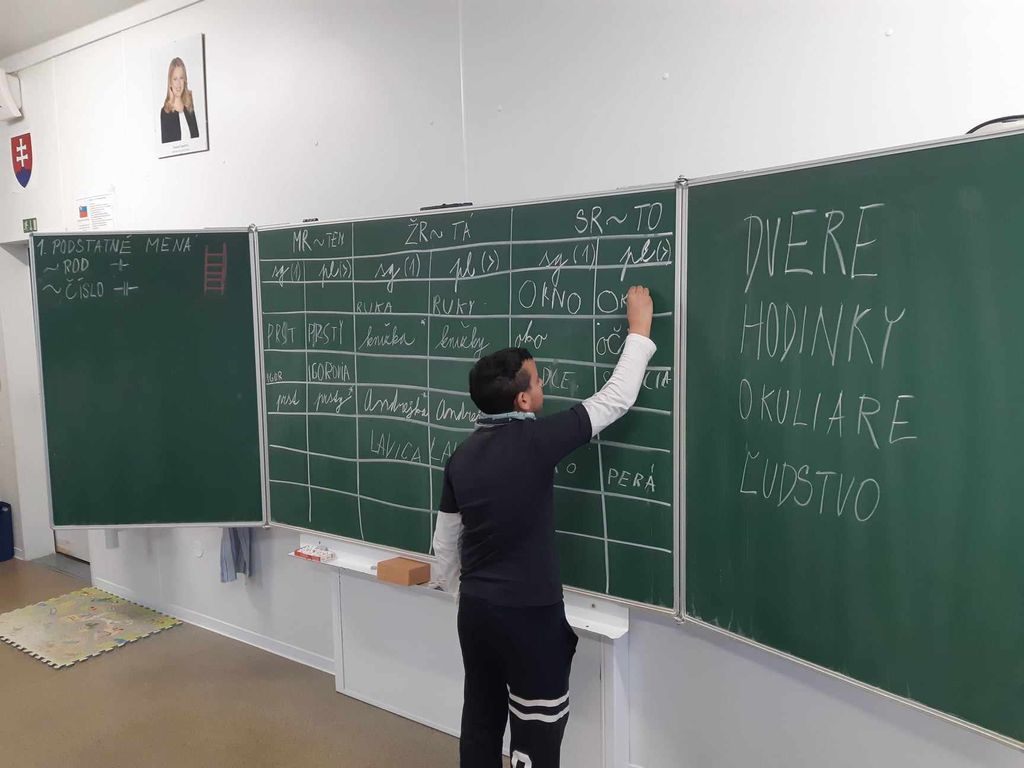 1. PODSTATNÉ MENÁ
~ ROD
~ ČÍSLO
MR ~ TEN ŽR ~ TÁ SR ~ TO
sg (1) pl (>) sg (1) pl (>) sg (1) pl (>)
RUKA RUKY OKNO OK
PRST PRSTY knižka knižky oko OČI
IGOR IGOROVIA DCE
prst prsty Andrejka
LAVICA LA
O PERÁ
DVERE
HODINKY
OKULIARE
ĽUDSTVO